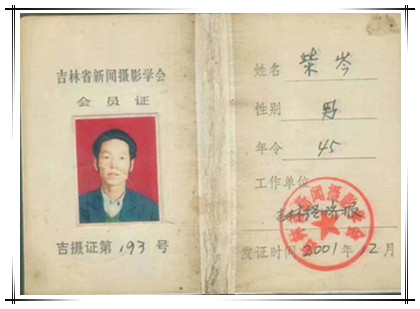 吉林省新闻摄影学会
会员证
吉摄证第193号
姓名 柴岑
性别 男
年令 45
工作单位
吉林经济报
发证时间2001年12月